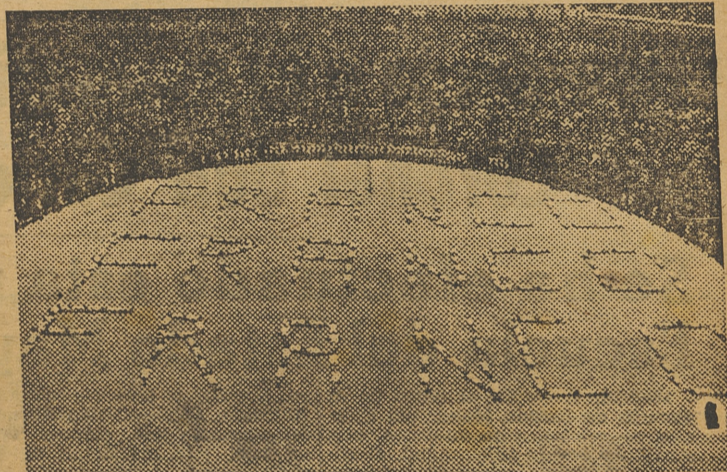 FRANCO
FRANCO
FRANCO